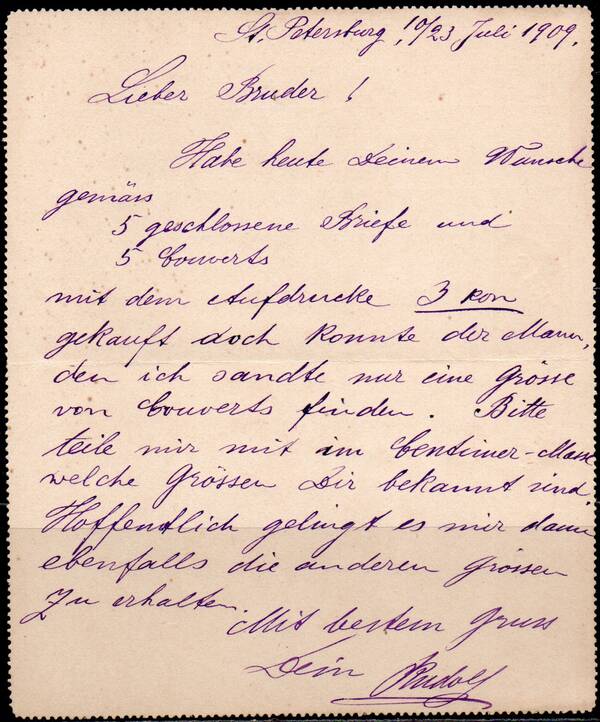 St. Petersburg, 10/23 Juli 1909.
Lieber Bruder !
Habe heute Deinem Wunsche
gemäss
5 geschlossene Briefe und
5 Couverts
mit dem Aufdrucke 3 коп
gekauft doch konnte der Mann,
den ich sandte nur eine Grösse
von Couverts finden. Bitte
teile mir mit im Centimer-Masse
welche Grössen Dir bekannt sind.
Hoffentlich gelingt es mir dann
ebenfalls die anderen Grössen
zu erhalten.
Mit bestem Gruss
Dein Rudolf